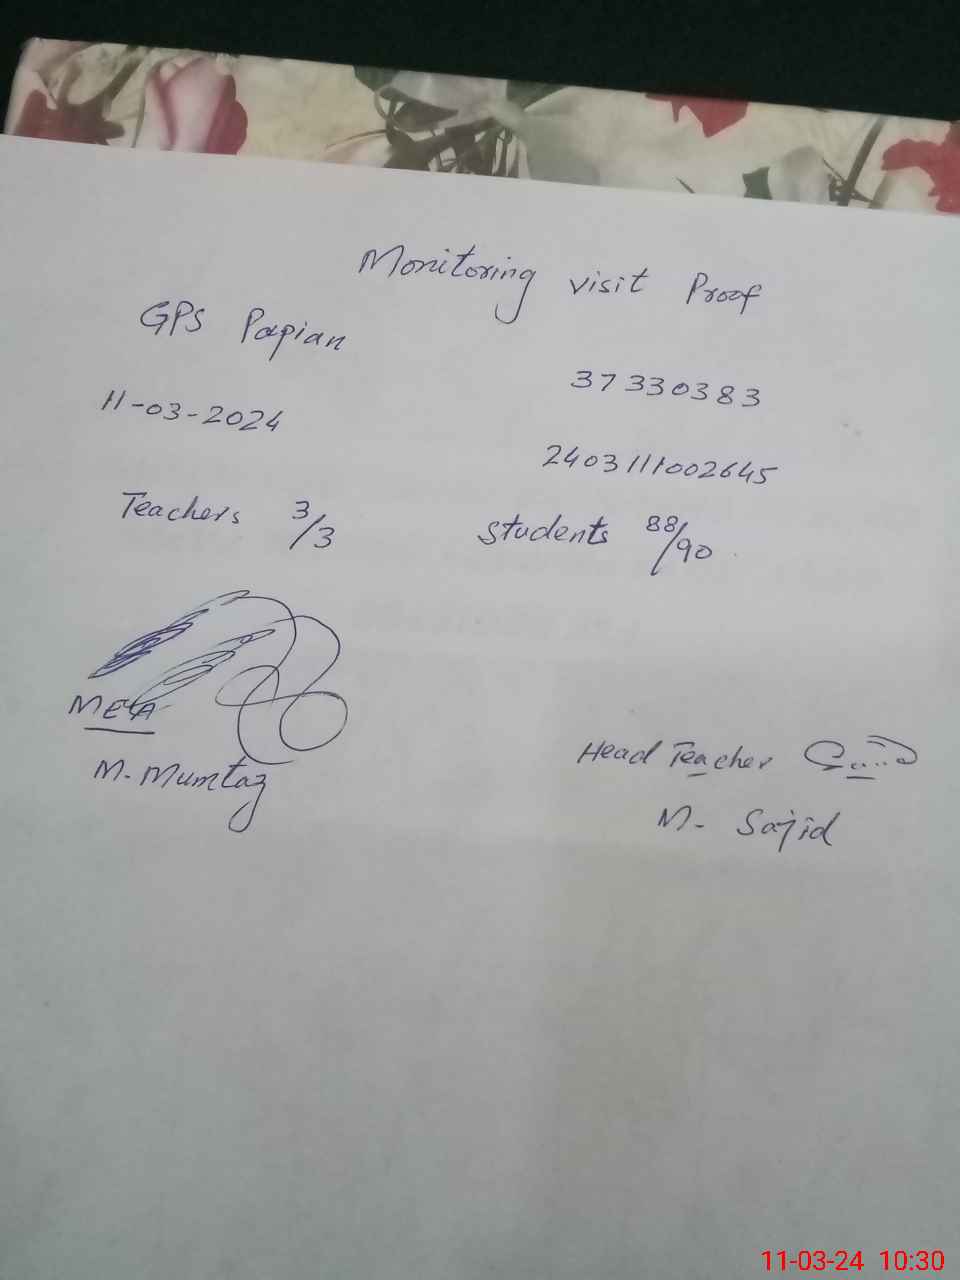 Monitoring visit Proof
GPS Papian
37330383
11-03-2024
2403111002645
Teachers 3/3
Students 88/90
MEA
M. Mumtaz
Head Teacher
M. Sajid
11-03-24 10:30